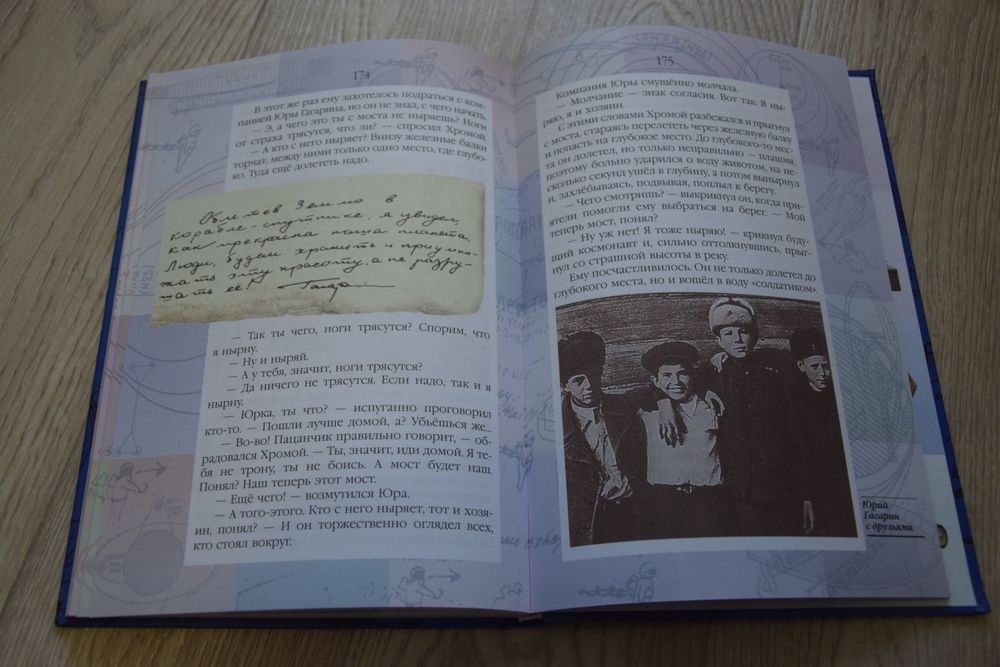 174
В этот же раз ему захотелось подраться с ком-
панией Юры Гагарина, но он не знал, с чего начать.
— Э, а чего это ты с моста не ныряешь? Ноги
от страха трясутся, что ли? — спросил Хромой.
— А кто с него ныряет? Внизу железные балки
торчат, между ними только одно место, где глубо-
ко. Туда ещё долететь надо.
Облетев Землю в
корабле-спутнике, я увидел,
как прекрасна наша планета.
Люди, будем хранить и приумно-
жать эту красоту, а не разру-
шать её!
Гагарин
— Так ты чего, ноги трясутся? Спорим, что
я нырну.
— Ну и ныряй.
— А у тебя, значит, ноги трясутся?
— Да ничего не трясутся. Если надо, так и я
нырну.
— Юрка, ты что? — испуганно проговорил
кто-то. — Пошли лучше домой, а? Убьёшься же..
— Во-во! Пацанчик правильно говорит, — об-
радовался Хромой. — Ты, значит, иди домой. Я те-
бя не трону, ты не боись. А мост будет наш.
Понял? Наш теперь этот мост.
— Ещё чего! — возмутился Юра.
— А того-этого. Кто с него ныряет, тот и хозя-
ин, понял? — И он торжественно оглядел всех,
кто стоял вокруг.
175
Компания Юры смущённо молчала.
— Молчание — знак согласия. Вот так. Я ны-
ряю, я и хозяин.
С этими словами Хромой разбежался и прыгнул
с моста, стараясь перелететь через железную балку
и попасть на глубокое место. До глубокого-то мес-
та он долетел, но только неправильно — плашмя,
поэтому больно ударился о воду животом, на не-
сколько секунд ушёл в глубину, а потом вынырнул
и, захлёбываясь, подвывая, поплыл к берегу.
— Чего смотришь? — выкрикнул он, когда при-
ятели помогли ему выбраться на берег. — Мой
теперь мост, понял?
— Ну уж нет! Я тоже ныряю! — крикнул буду-
щий космонавт и, сильно оттолкнувшись, прыг-
нул со страшной высоты в реку.
Ему посчастливилось. Он не только долетел до
глубокого места, но и вошёл в воду «солдатиком».
Юрий
Гагарин
с друзьями